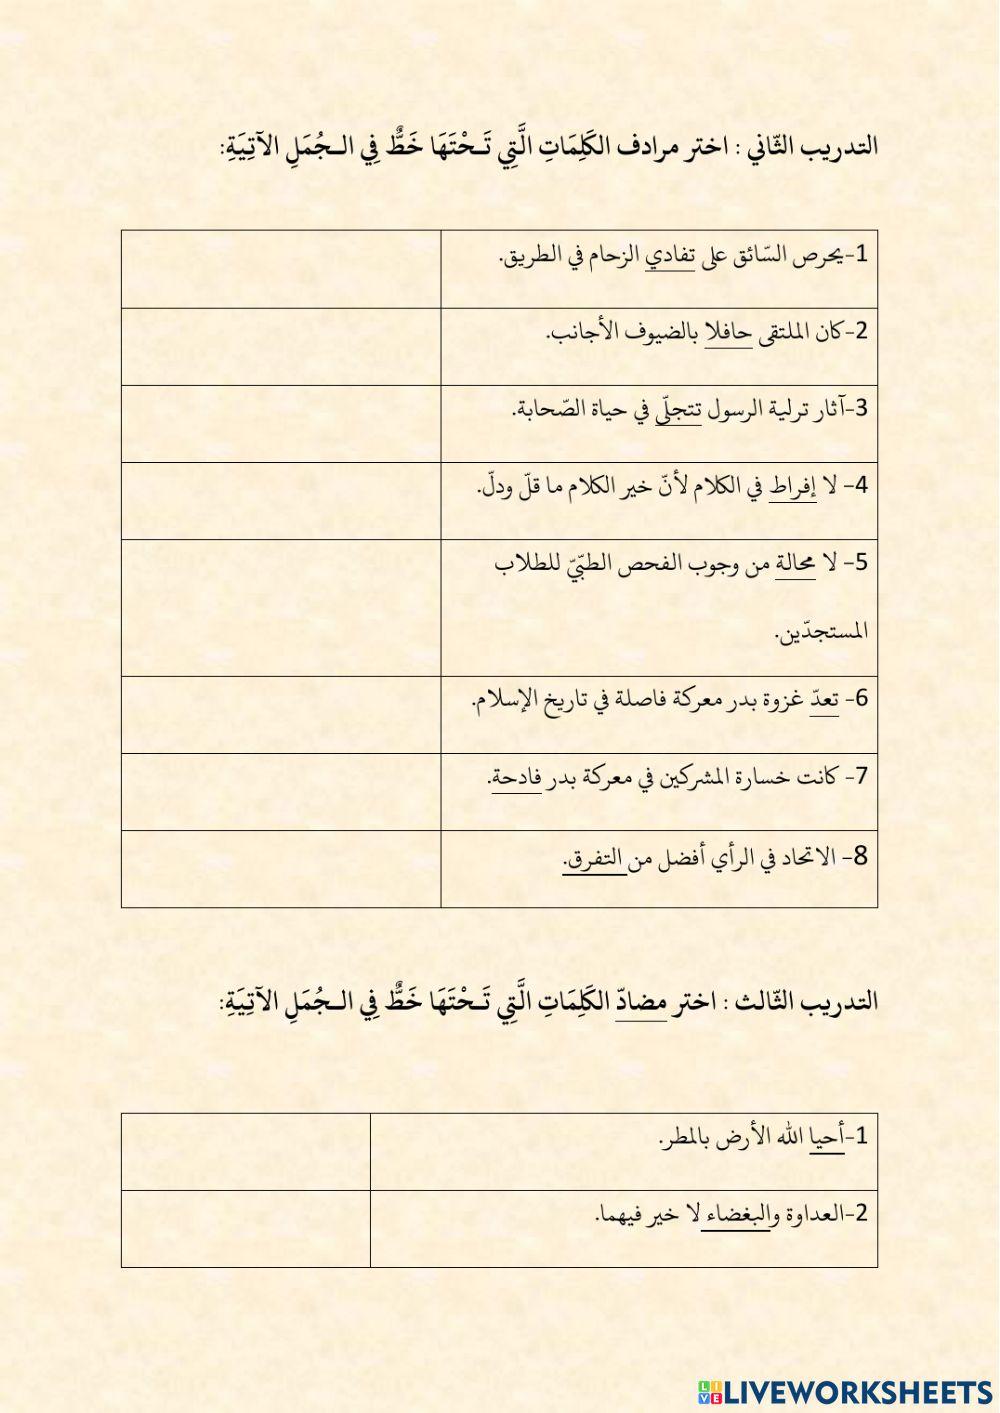 التدريب الثّاني : اختر مرادف الكَلِمَاتِ الَّتِي تَـحْتَهَا خَطٌّ فِي الـجُمَلِ الآتِيَةِ:
1-يحرص السّائق على تفادي الزحام في الطريق.
2-كان الملتقى حافلا بالضيوف الأجانب.
3-آثار ترلية الرسول تتجلّى في حياة الصّحابة.
4- لا إفراط في الكلام لأنّ خير الكلام ما قلّ ودلّ.
5- لا محالة من وجوب الفحص الطبّيّ للطلاب
المستجدّين.
6- تعدّ غزوة بدر معركة فاصلة في تاريخ الإسلام.
7- كانت خسارة المشركين في معركة بدر فادحة.
8- الاتحاد في الرأي أفضل من التفرق.
التدريب الثّالث : اختر مضادّ الكَلِمَاتِ الَّتِي تَـحْتَهَا خَطٌّ فِي الـجُمَلِ الآتِيَةِ:
1-أحيا الله الأرض بالمطر.
2-العداوة والبغضاء لا خير فيهما.
LIVEWORKSHEETS